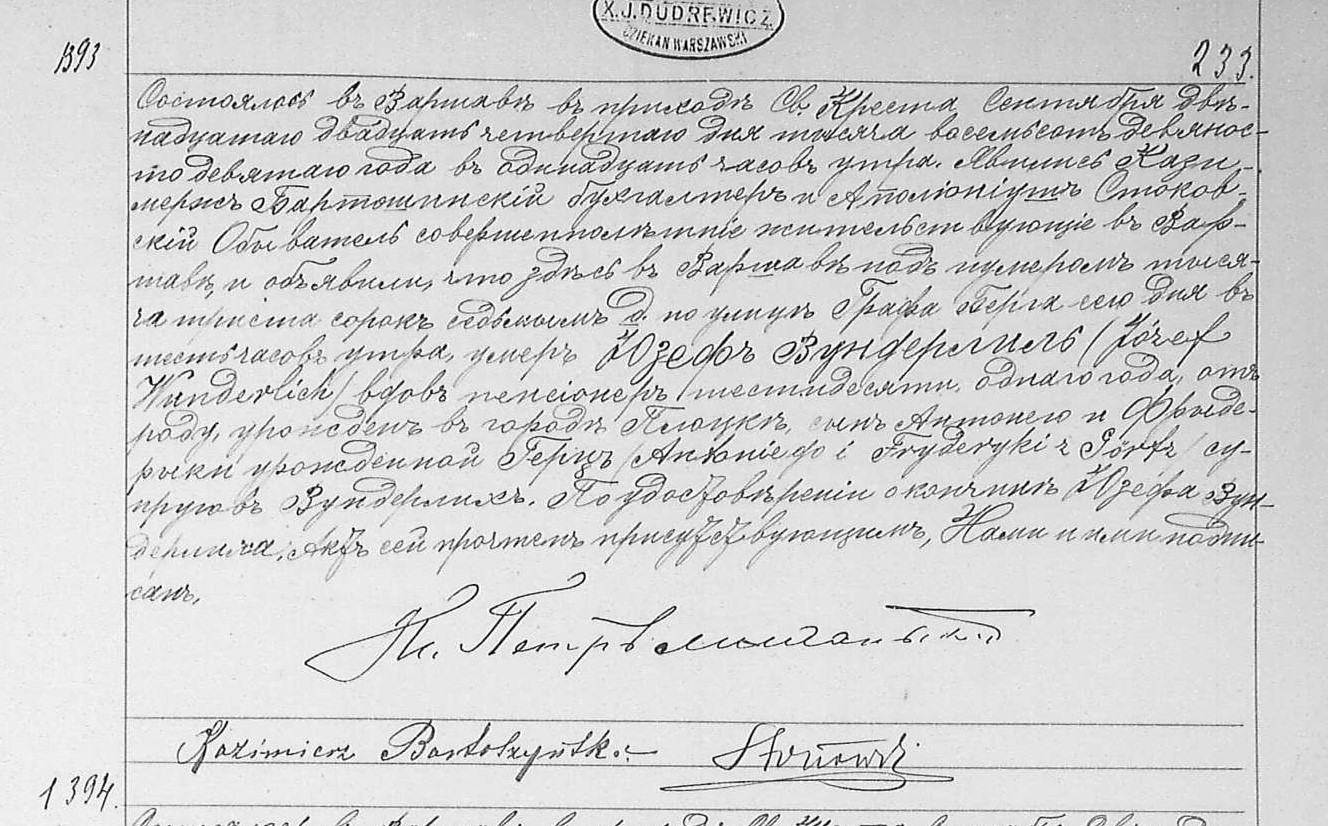 X. J. DUDREWICZ.
DZIEKAN WARSZAWSKI
1393
233.
Состоялось въ Варшавѣ въ приходѣ Св. Креста, Сентября двѣ-
надцатаго двадцать четвертаго дня тысяча восемьсотъ девянос-
то девятаго года въ одинадцать часовъ утра. Явились Кази-
меръ Бартошинскій бухгалтеръ и Стоков-
скій Обыватель совершеннолѣтніе жительствующіе въ Вар-
шавѣ, и объявили, что здѣсь въ Варшавѣ подъ нумеромъ тыся-
ча триста сорокъ седьмымъ d. по улицѣ Графа Берга сего дня въ
шесть часовъ утра, умеръ Юзефъ Вундерлихъ (Józef
Wunderlich) вдовъ пенсіонеръ шестидесяти одного года, отъ
роду, урожденъ въ городѣ Плоцкѣ, сынъ Антонего и Фрыде-
рыки урожденной Герцъ /Antoniego i Fryderyki z / су-
пруговъ Вундерлихъ. По удостовѣреніи о кончинѣ Юзефа Вун-
дерлиха, Актъ сей прочтенъ присутствующимъ, Нами и ими подпи-
санъ.
Кс. Петръ
Kazimierz Bartoszyński
1394.